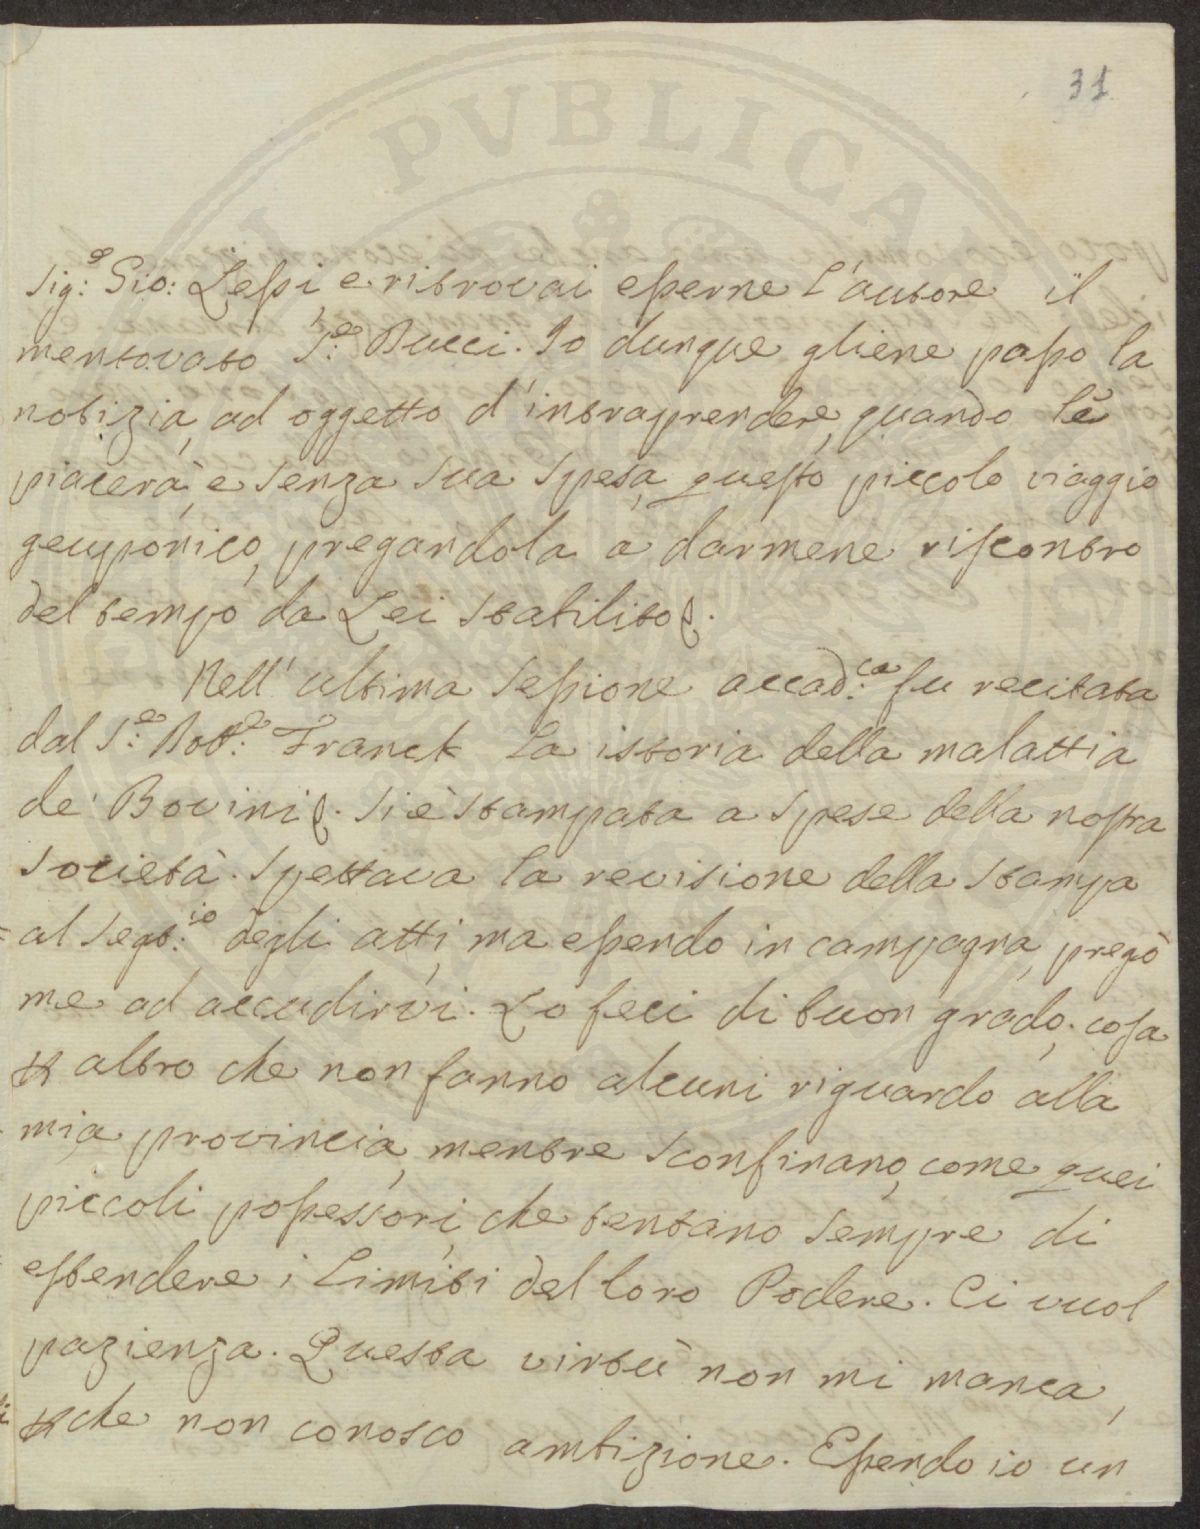 31
Sig.e Gio: Lessi, e ritrovai esserne l'autore il
mentovato S.e Bucci. Io dunque gliene passo la
notizia, ad oggetto d'intraprendere, quando le
piacerà, e senza sua spesa, questo piccolo viaggio
geuponico, pregandola a darmene riscontro
del tempo da Lei stabilito
Nell'ultima sessione accad:ca fu recitata
dal S.e Dott.e Franck la istoria della malattia
de' Bovini Si è stampata a spese della nostra
società. Spettava la revisione della stampa
al Segr:io degli atti, ma essendo in campagna, pregò
me ad accudirvi. Lo feci di buon grado; cosa
altro che non fanno alcuni riguardo alla
mia provincia, mentre sconfinano, come quei
piccoli possessori, che tentano sempre di
estendere i limiti del loro Podere. Ci vuol
pazienza. Questa virtù non mi manca,
che non conosco ambizione. Essendo io un